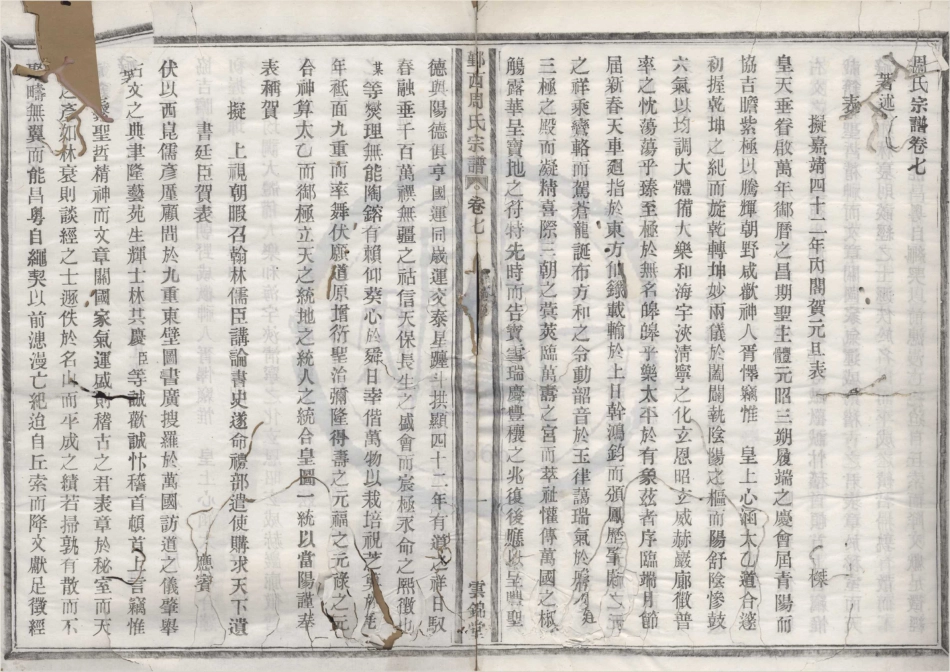 周氏宗譜卷七
著述
表
擬嘉靖四十二年內閣賀元旦表 樑
皇天垂眷啟萬年御曆之昌期聖主體元昭三朔履端之慶會屆青陽而
協吉瞻紫極以騰輝朝野咸歡神人胥懌竊惟 皇上心涵太乙道合邃
初握乾坤之紀而旋乾轉坤妙兩儀於闔闢執陰陽之樞而陽舒陰慘鼓
六氣以均調大體備大樂和海宇浹清寧之化玄恩昭玄威赫巖廊徵普
率之忱蕩蕩乎臻至極於無名皞皞乎樂太平於有象茲者序臨端月節
屆新春天車廻指於東方仙籙載輸於上日幹鴻鈞而頒鳳歷鞏
之祥乘鸞輅而駕蒼龍誕布方和之令動韶音於玉律藹瑞氣於
三極之殿而凝精喜際三朝之蓂莢臨萬壽之宮而萃祉懽傳萬國之椒
觴露華呈寶地之符特先時而告寶雪瑞慶豐穰之兆復後應以呈豐聖
鄞西周氏宗譜 卷七 一 雲錦堂
德與陽德俱亨國運同歲運交泰星躔斗拱顯四十二年有道之祥日馭
春融垂千百萬禩無疆之祜信天保長生之盛會而宸極永命之熙徵也
某等爕理無能陶鎔有賴仰葵心於舜日幸偕萬物以栽培視芝
年祗面九重而率舞伏願道原增衍聖治彌隆得壽之元福之元祿之元
合神算太乙而御極立天之統地之統人之統合皇圖一統以當陽謹奉
表稱賀
擬 上視朝暇召翰林儒臣講論書史遂命禮部遣使購求天下遺
書廷臣賀表 應賓
伏以西崑儒彥厪顧問於九重東壁圖書廣搜羅於萬國訪道之儀肇舉
右文之典聿隆藝苑生輝士林共慶臣等誠歡誠忭稽首頓首上言竊惟
聖哲精神而文章關國家氣運盛則稽古之君表章於秘室而天
之彥如林衰則談經之士遯佚於名山而平成之績若掃孰有散而不
聚疇無翼而能昌粤自繩契以前漶漫亡紀迨自丘索而降文獻足徵經